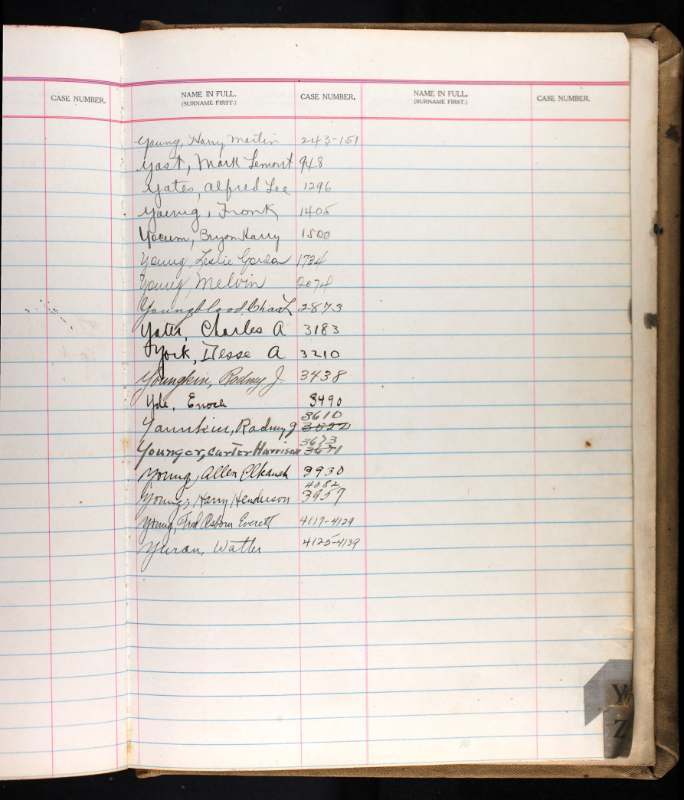 CASE NUMBER. NAME IN FULL. CASE NUMBER. NAME IN FULL. CASE NUMBER.
(SURNAME FIRST.) (SURNAME FIRST.)
Young, Harry Martin 243-151
Yost, Mark Lemont 948
Yates, Alfred Lee 1296
Young, Frank 1405
Yocum, Bryon Harry 1500
Young, Leslie Gordon 1784
Young, Melvin 2074
Youngblood, Chas L 2873
Yates, Charles A 3183
York, Jesse A 3210
Youngkin, Rodney J. 3438
Enoch 3490
3610
Rodney J
3673
Younger, Carter Harrison 3671
Young, Allen 3930
4082
Young, Harry Henderson 3957
Young, Fred Osborn Everett 4117-4129
Walter 4125-4139
Y
Z